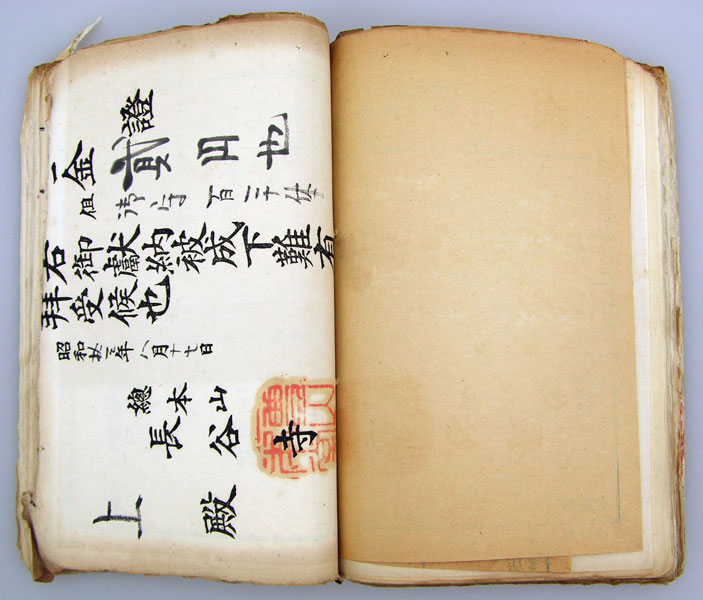 證
一金貳円也
但御守百二十体
右御獻納被成下難有
拜受候也
昭和拾三年八月十七日
總本山
長谷寺
上殿